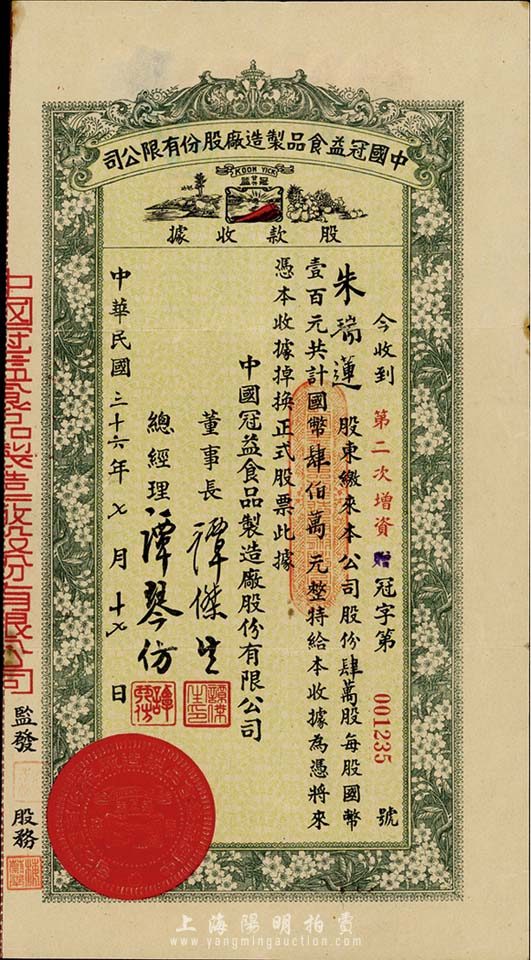 中國冠益食品製造廠股份有限公司
KOON YICK
冠益
股款收據
今收到 第二次增資 贈 冠字第 001235 號
朱瑞蓮 股東繳來本公司股份肆萬股每股國幣
壹百元共計國幣肆佰萬元整特給本收據為憑將來
憑本收據掉換正式股票此據
中國冠益食品製造廠股份有限公司
董事長 譚傑生
總經理 譚琴仿
中華民國三十六年七月十七日
中國冠益食品製造廠股份有限公司
監發
股務
上海陽明拍賣
www.yangmingauction.com